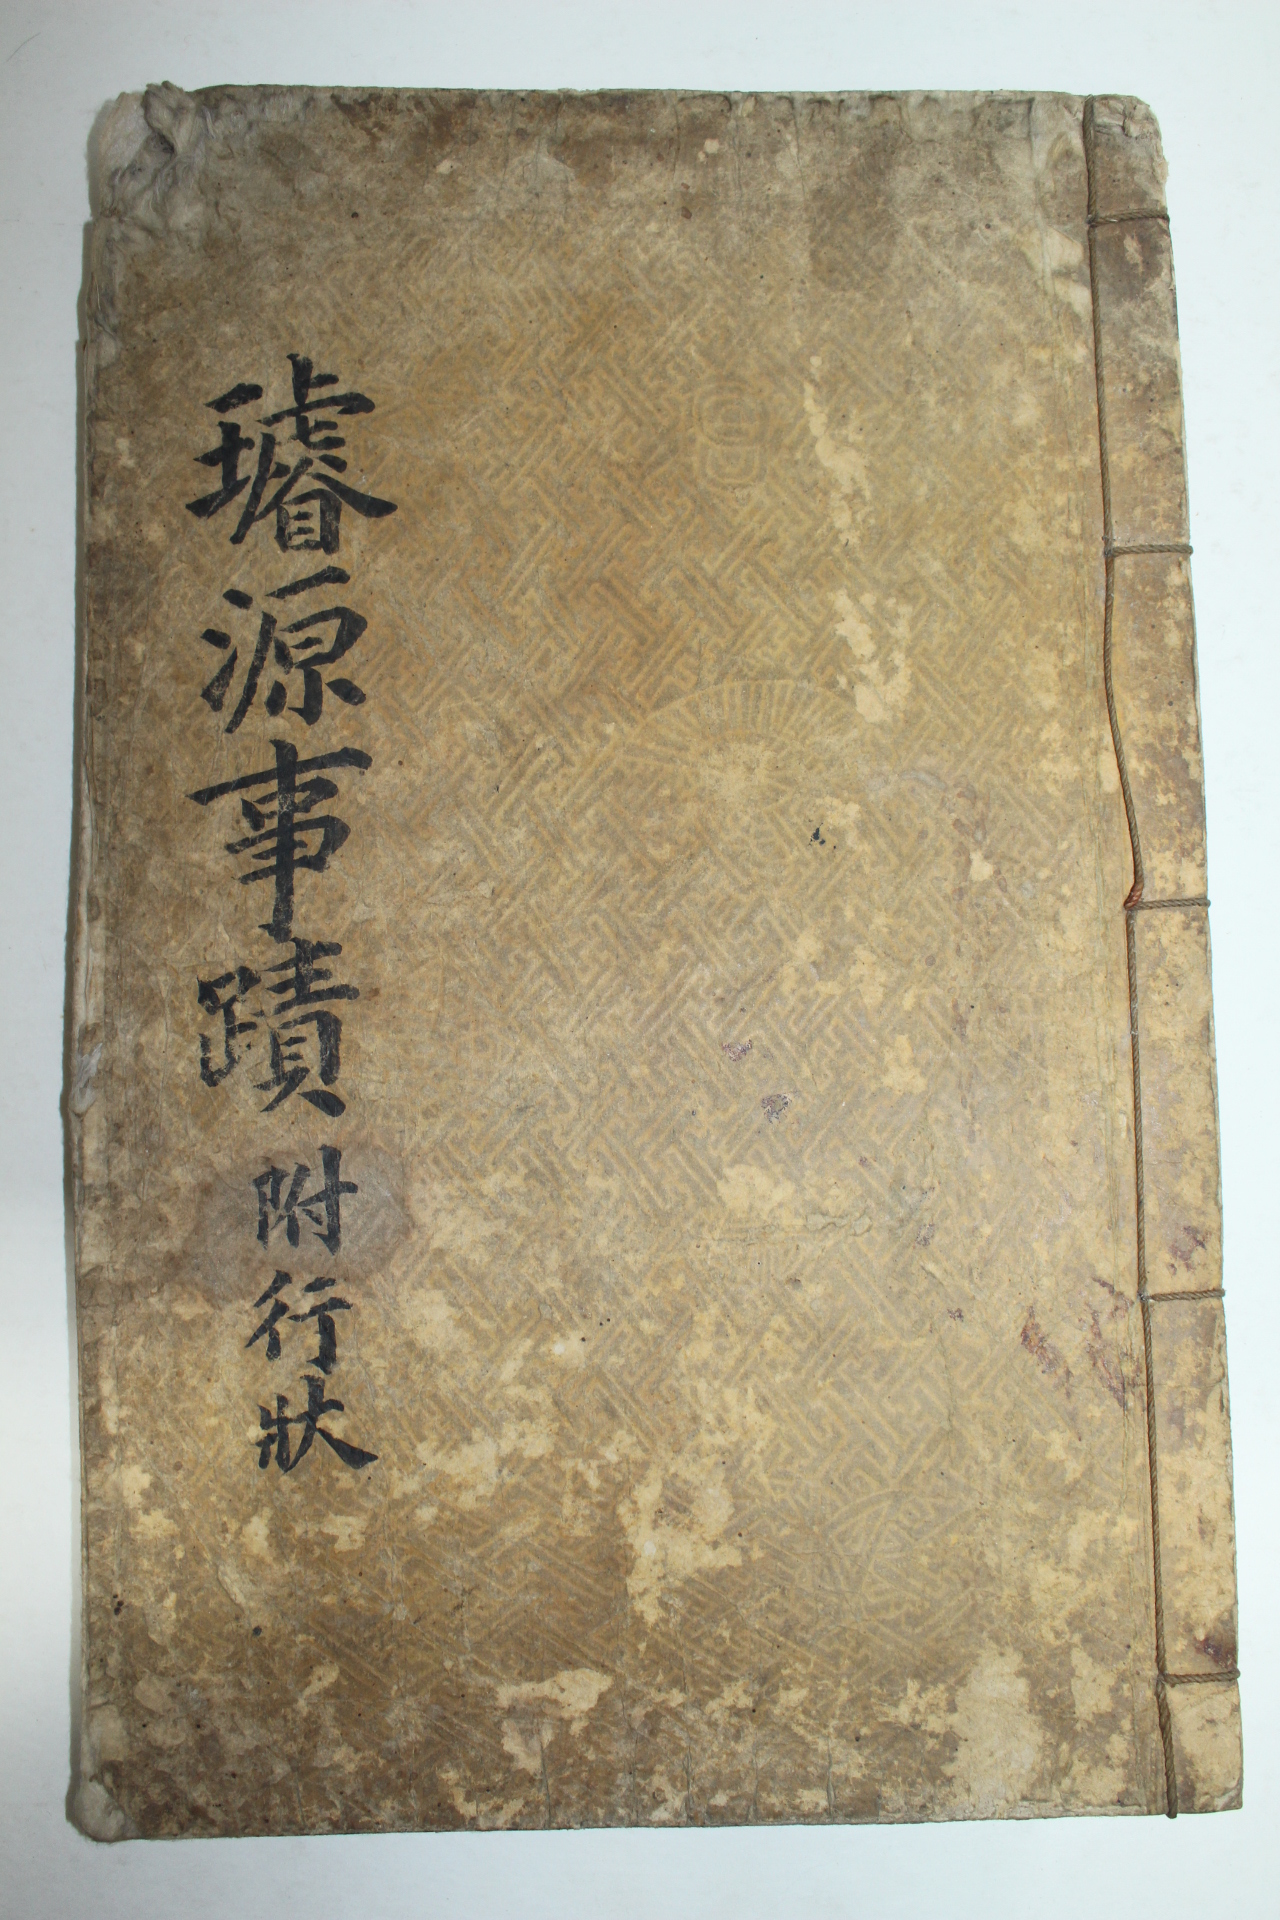 璿源事蹟 附行狀